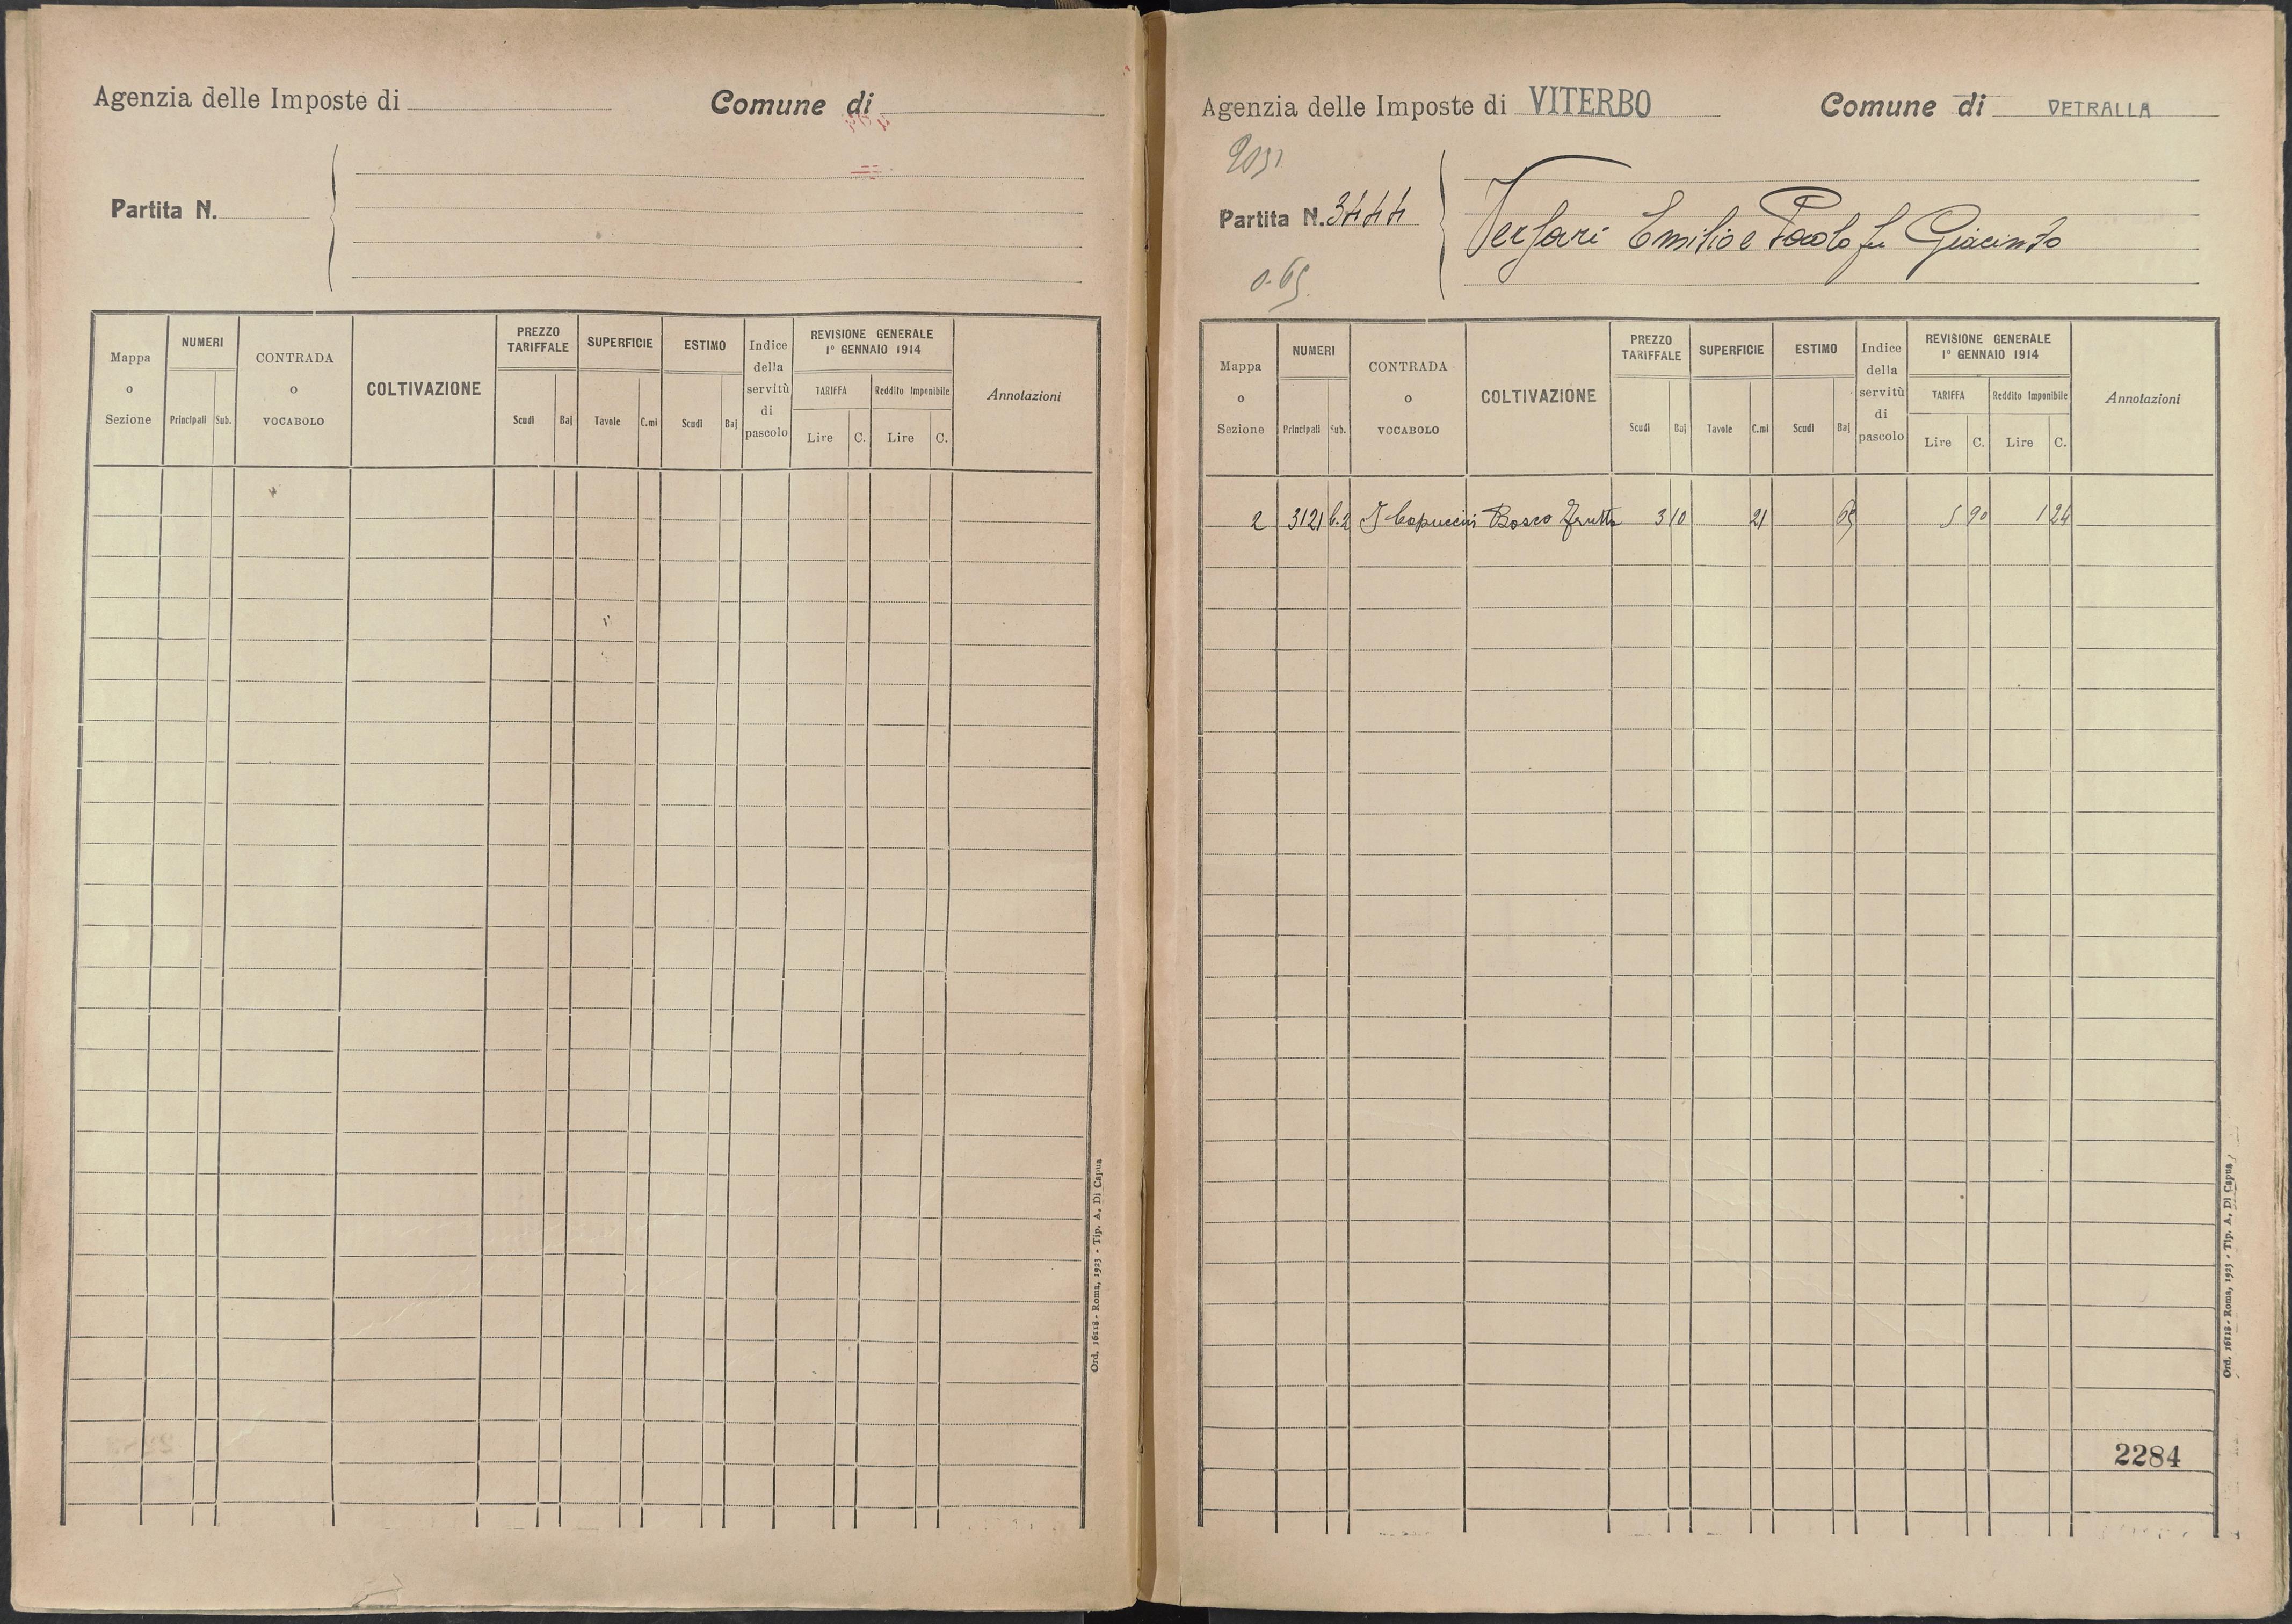 Agenzia delle Imposte di
Comune di
Partita N.
Mappa o Sezione
NUMERI
Principali
Sub.
CONTRADA o VOCABOLO
COLTIVAZIONE
PREZZO TARIFFALE
Scudi
Baj
SUPERFICIE
Tavole
C.mi
ESTIMO
Scudi
Baj
Indice della servitù di pascolo
REVISIONE GENERALE
1° GENNAIO 1914
TARIFFA
Reddito Imponibile
Lire
C.
Lire
C.
Annotazioni
Ord. 16118 - Roma, 1923 - Tip. A. Di Capua
Agenzia delle Imposte di VITERBO
Comune di VETRALLA
Partita N. 3444
Emilio e Paolo fu Giacinto
0.65
Mappa o Sezione
NUMERI
Principali
Sub.
CONTRADA o VOCABOLO
COLTIVAZIONE
PREZZO TARIFFALE
Scudi
Baj
SUPERFICIE
Tavole
C.mi
ESTIMO
Scudi
Baj
Indice della servitù di pascolo
REVISIONE GENERALE
1° GENNAIO 1914
TARIFFA
Reddito Imponibile
Lire
C.
Lire
C.
Annotazioni
2 3121 Capuccini Bosco 3 10 21 65 5 90 1 24
2284
Ord. 16118 - Roma, 1923 - Tip. A. Di Capua